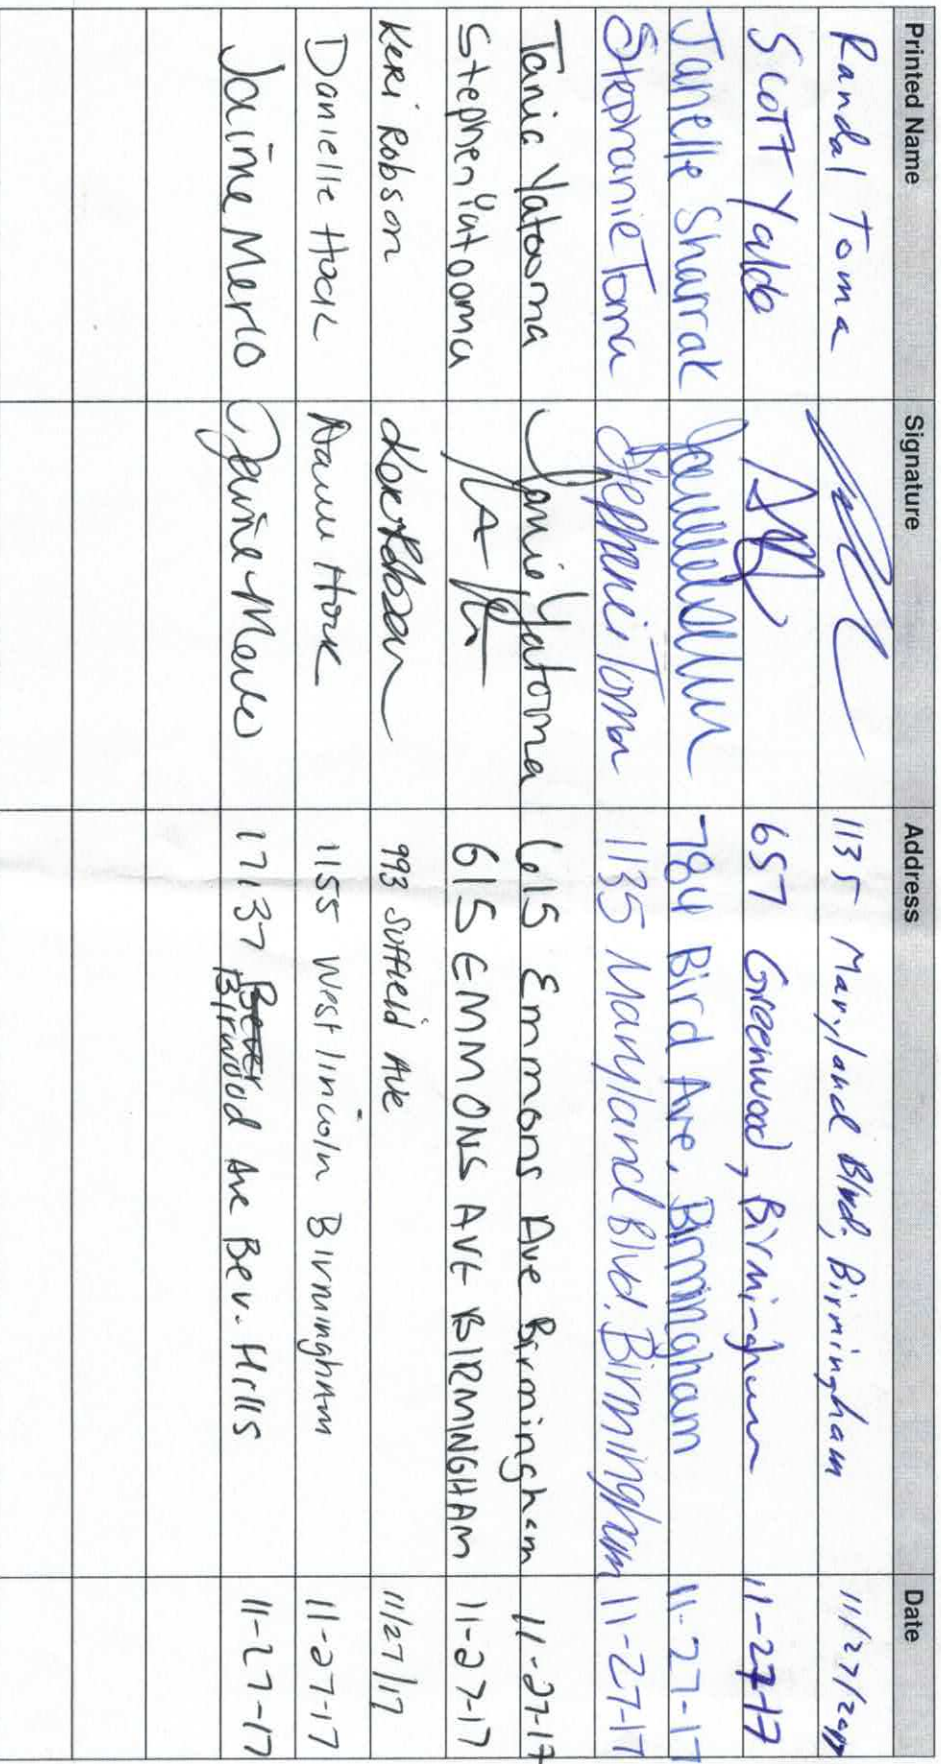 Printed Name Signature Address Date
Randal Toma 1135 Maryland Blvd, Birmingham 11/27/2017
Scott Yaldo 657 Greenwood, Birmingham 11-27-17
Janelle Sharrak 784 Bird Ave, Birmingham 11-27-17
Stephanie Toma Stephanie Toma 1135 Maryland Blvd, Birmingham 11-27-17
Tania Yatooma Tania Yatooma 615 Emmons Ave Birmingham 11-27-17
Stephen Yatooma 615 EMMONS AVE BIRMINGHAM 11-27-17
Keri Robson Keri Robson 993 Suffield Ave 11/27/17
Danielle Hook 1155 West Lincoln Birmingham 11-27-17
Jaime Merlo Jaime Merlo 17137 Birwood Ave Bev. Hills 11-27-17